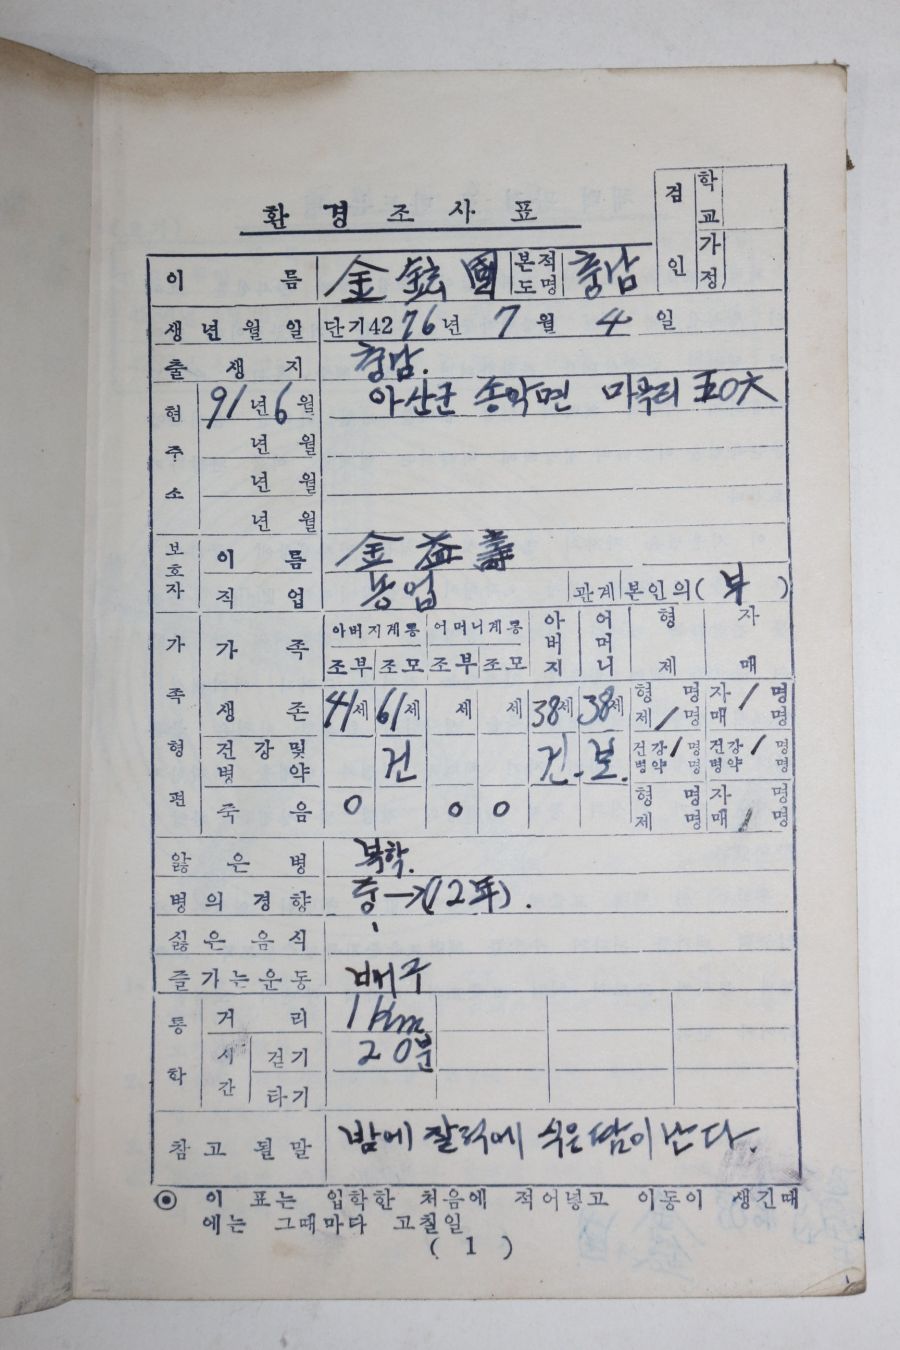 환경조사표
검인 학교
가정
이름 金鉉國 본적도명 충남
생년월일 단기4276년 7월 4일
출생지 충남.
현주소 91년6월 아산군 송악면 마곡리 五0六
년 월
년 월
년 월
보호자 이름 金益壽
직업 농업 관계 본인의(부)
가족형편 가족 아버지계통 어머니계통 아버지 어머니 형제 자매
조부 조모 조부 조모
생존 41세 61세 세 세 38세 38세 형 명 자 1명
제 1명 매 명
건강및병약 건 건. 보. 건강1명 건강1명
병약 명 병약 명
죽음 0 0 0 형 명 자 명
제 명 매 1명
앓은병 복학.
병의경향 중→(12年).
싫은음식
즐가는운동 배구
통학 거리 1Km
시간 걷기 20분
타기
참고될말 밤에 잘적에 식은땀이 난다.
◉ 이 표는 입학한 처음에 적어넣고 이동이 생긴때
에는 그때마다 고칠일
( 1 )